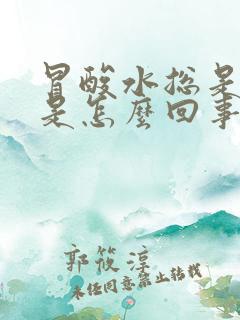 冒酸水总是
是怎麼回事
郭筱淳
未经同意禁止转载